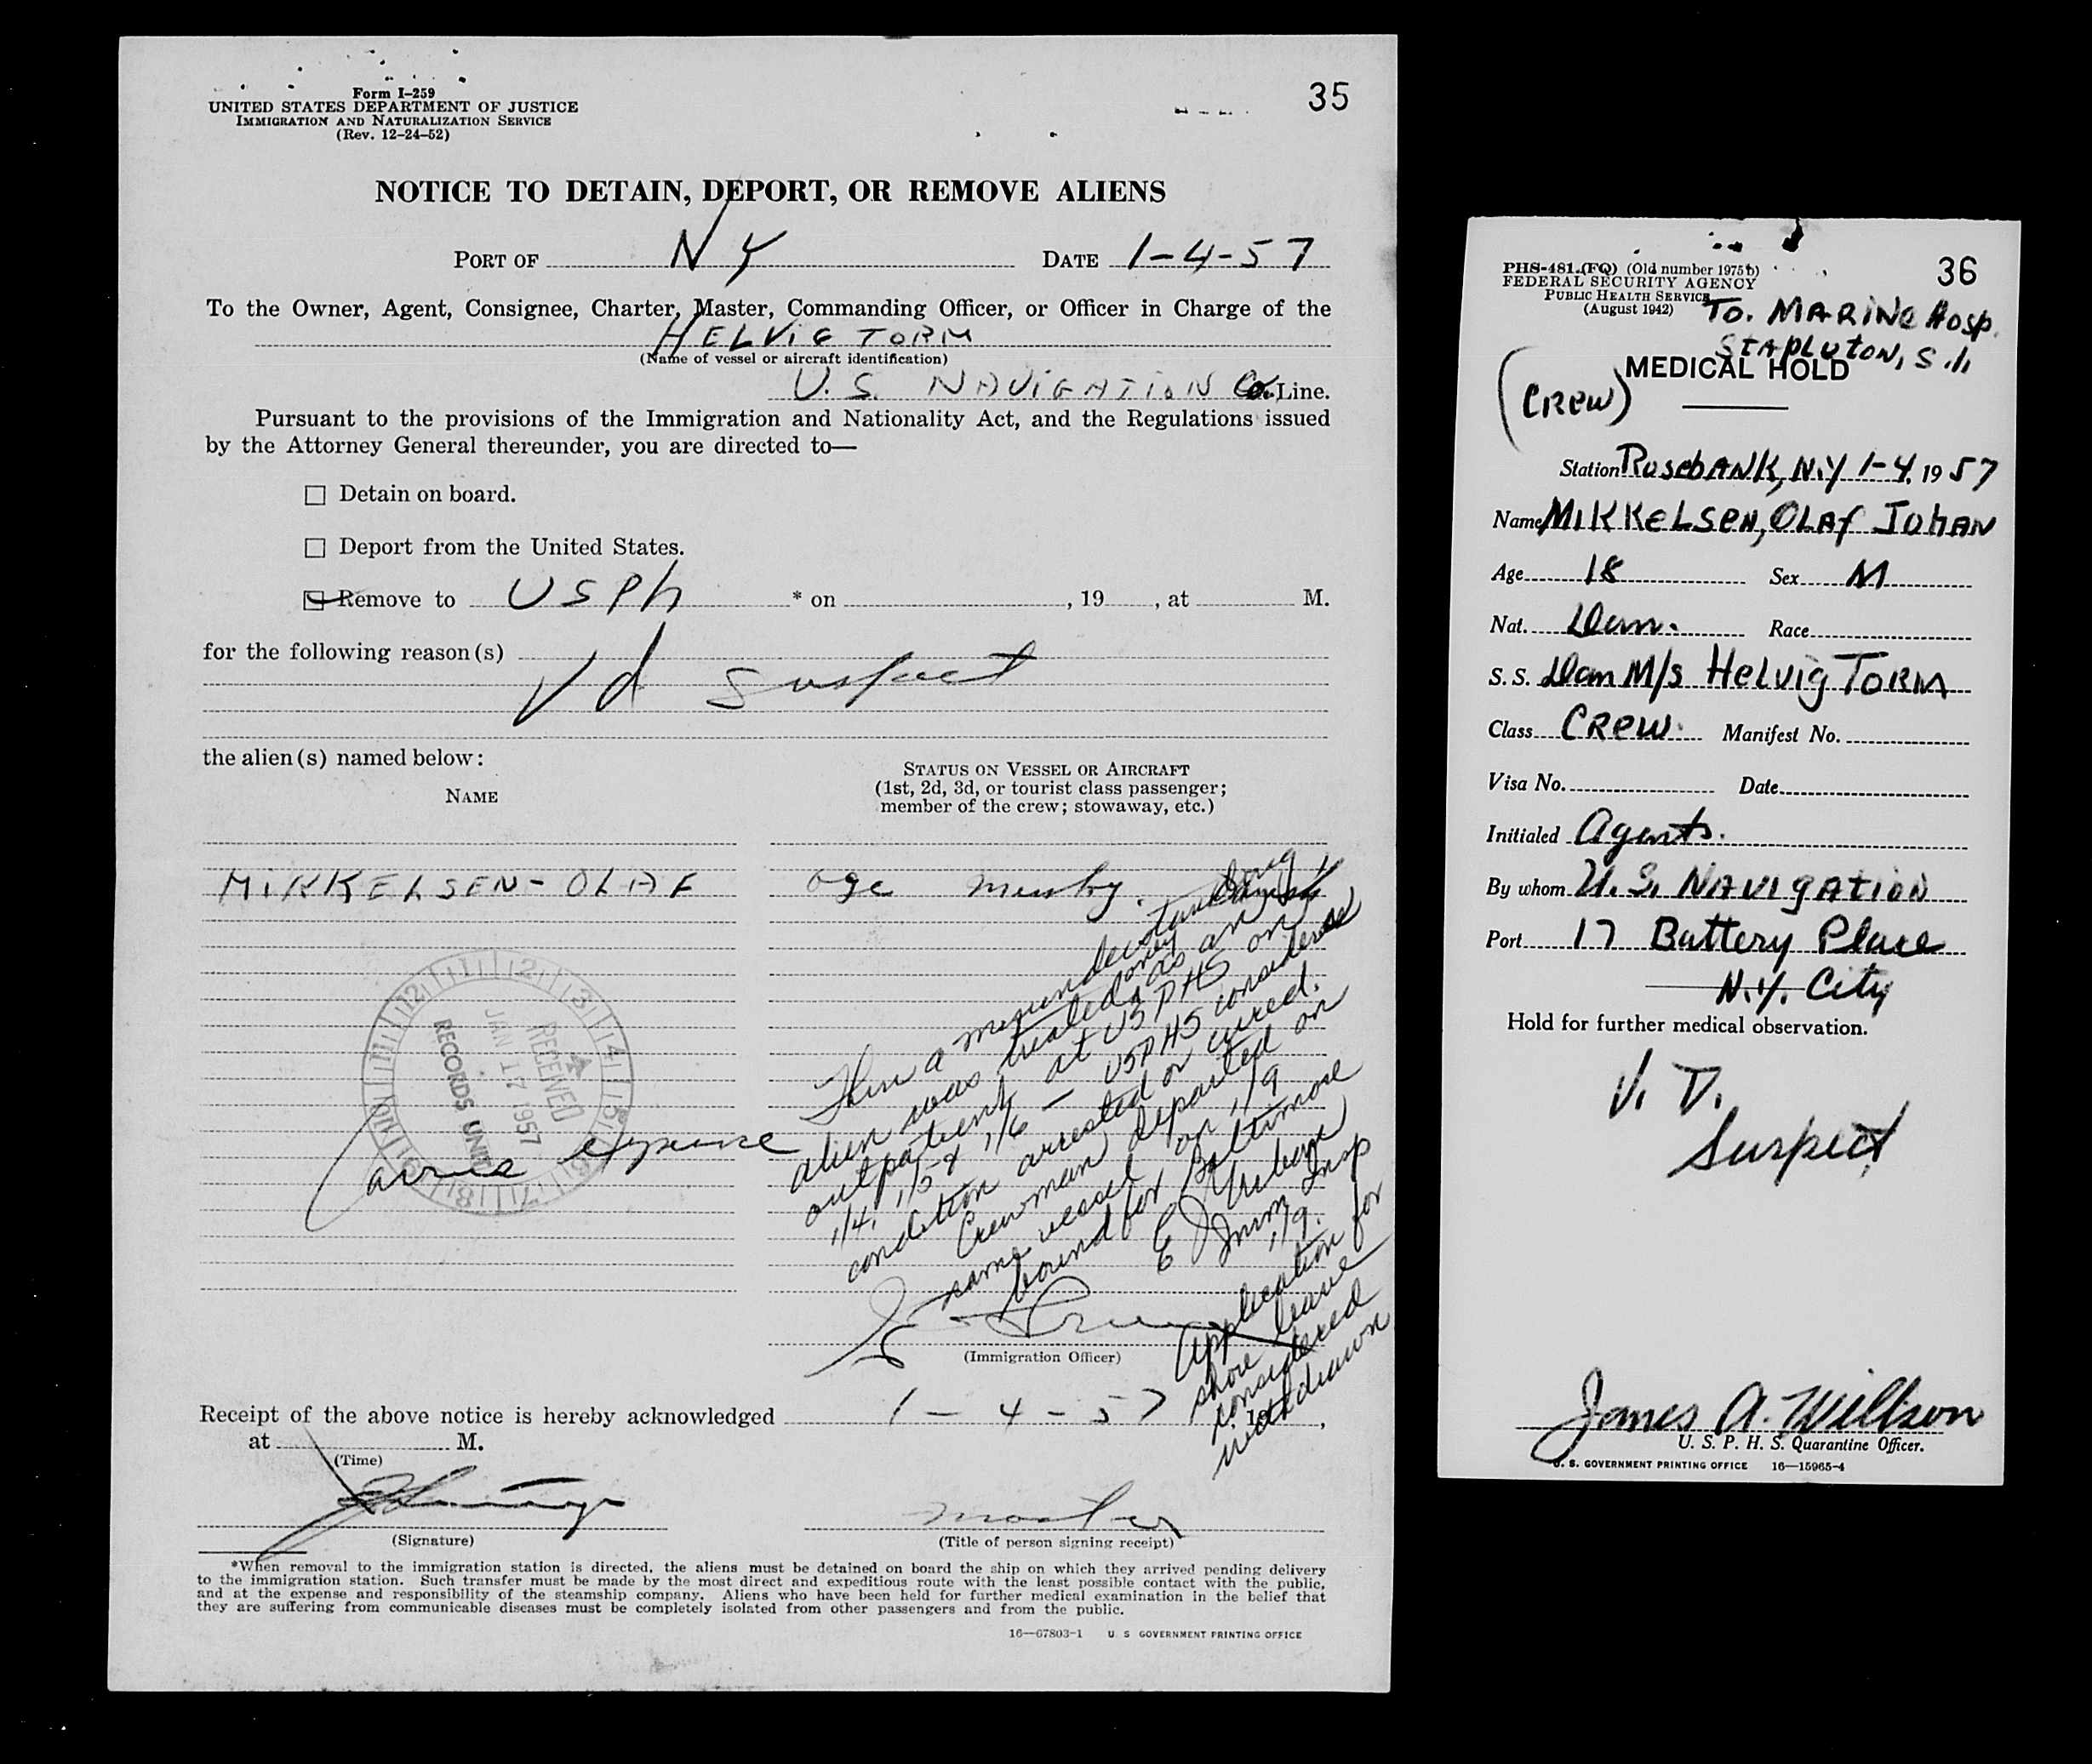 Form I–259
UNITED STATES DEPARTMENT OF JUSTICE
IMMIGRATION AND NATURALIZATION SERVICE
(Rev. 12–24–52)
35
NOTICE TO DETAIN, DEPORT, OR REMOVE ALIENS
PORT OF N Y DATE 1-4-57
To the Owner, Agent, Consignee, Charter, Master, Commanding Officer, or Officer in Charge of the
HELVIG TORM
(Name of vessel or aircraft identification)
U.S. NAVIGATION Co. Line.
Pursuant to the provisions of the Immigration and Nationality Act, and the Regulations issued
by the Attorney General thereunder, you are directed to—
Detain on board.
Deport from the United States.
Remove to USPh * on , 19 , at M.
for the following reason(s)
Vd suspect
the alien(s) named below:
NAME
STATUS ON VESSEL OR AIRCRAFT
(1st, 2d, 3d, or tourist class passenger;
member of the crew; stowaway, etc.)
MIKKELSEN - OLAF
Danish
Thru a misunderstanding
alien was treated only as an
outpatient at USPHS on
1/4, 1/5 & 1/6 — USPHS considered
condition arrested or cured.
Crewman departed on
same vessel on 1/9
bound for Baltimore
Imm Insp
1/9.
Application for
shore leave
considered
withdrawn
RECEIVED
JAN 17 1957
RECORDS UNIT
expense
(Immigration Officer)
Receipt of the above notice is hereby acknowledged 1-4-57
at M.
(Time)
Master
(Signature)
(Title of person signing receipt)
*When removal to the immigration station is directed, the aliens must be detained on board the ship on which they arrived pending delivery
to the immigration station. Such transfer must be made by the most direct and expeditious route with the least possible contact with the public,
and at the expense and responsibility of the steamship company. Aliens who have been held for further medical examination in the belief that
they are suffering from communicable diseases must be completely isolated from other passengers and from the public.
16—67803-1 U. S. GOVERNMENT PRINTING OFFICE
PHS-481 (FQ) (Old number 1975b)
FEDERAL SECURITY AGENCY
PUBLIC HEALTH SERVICE
(August 1942)
36
To. MARINE Hosp.
STAPLUTON, S.I.
MEDICAL HOLD
(CREW)
Station RosebANK, N.Y 1-4, 1957
Name MIKKELSEN, OLAF JOHAN
Age 18 Sex M
Nat. Dan. Race
S. S. Dan M/s HELVIG TORM
Class CREW. Manifest No.
Visa No. Date
Initialed Agents.
By whom U.S. NAVIGATION
Port 17 Battery Place
N.Y. City
Hold for further medical observation.
V. D.
Suspect
James A. Willson
U. S. P. H. S. Quarantine Officer.
U. S. GOVERNMENT PRINTING OFFICE 16—15965-4